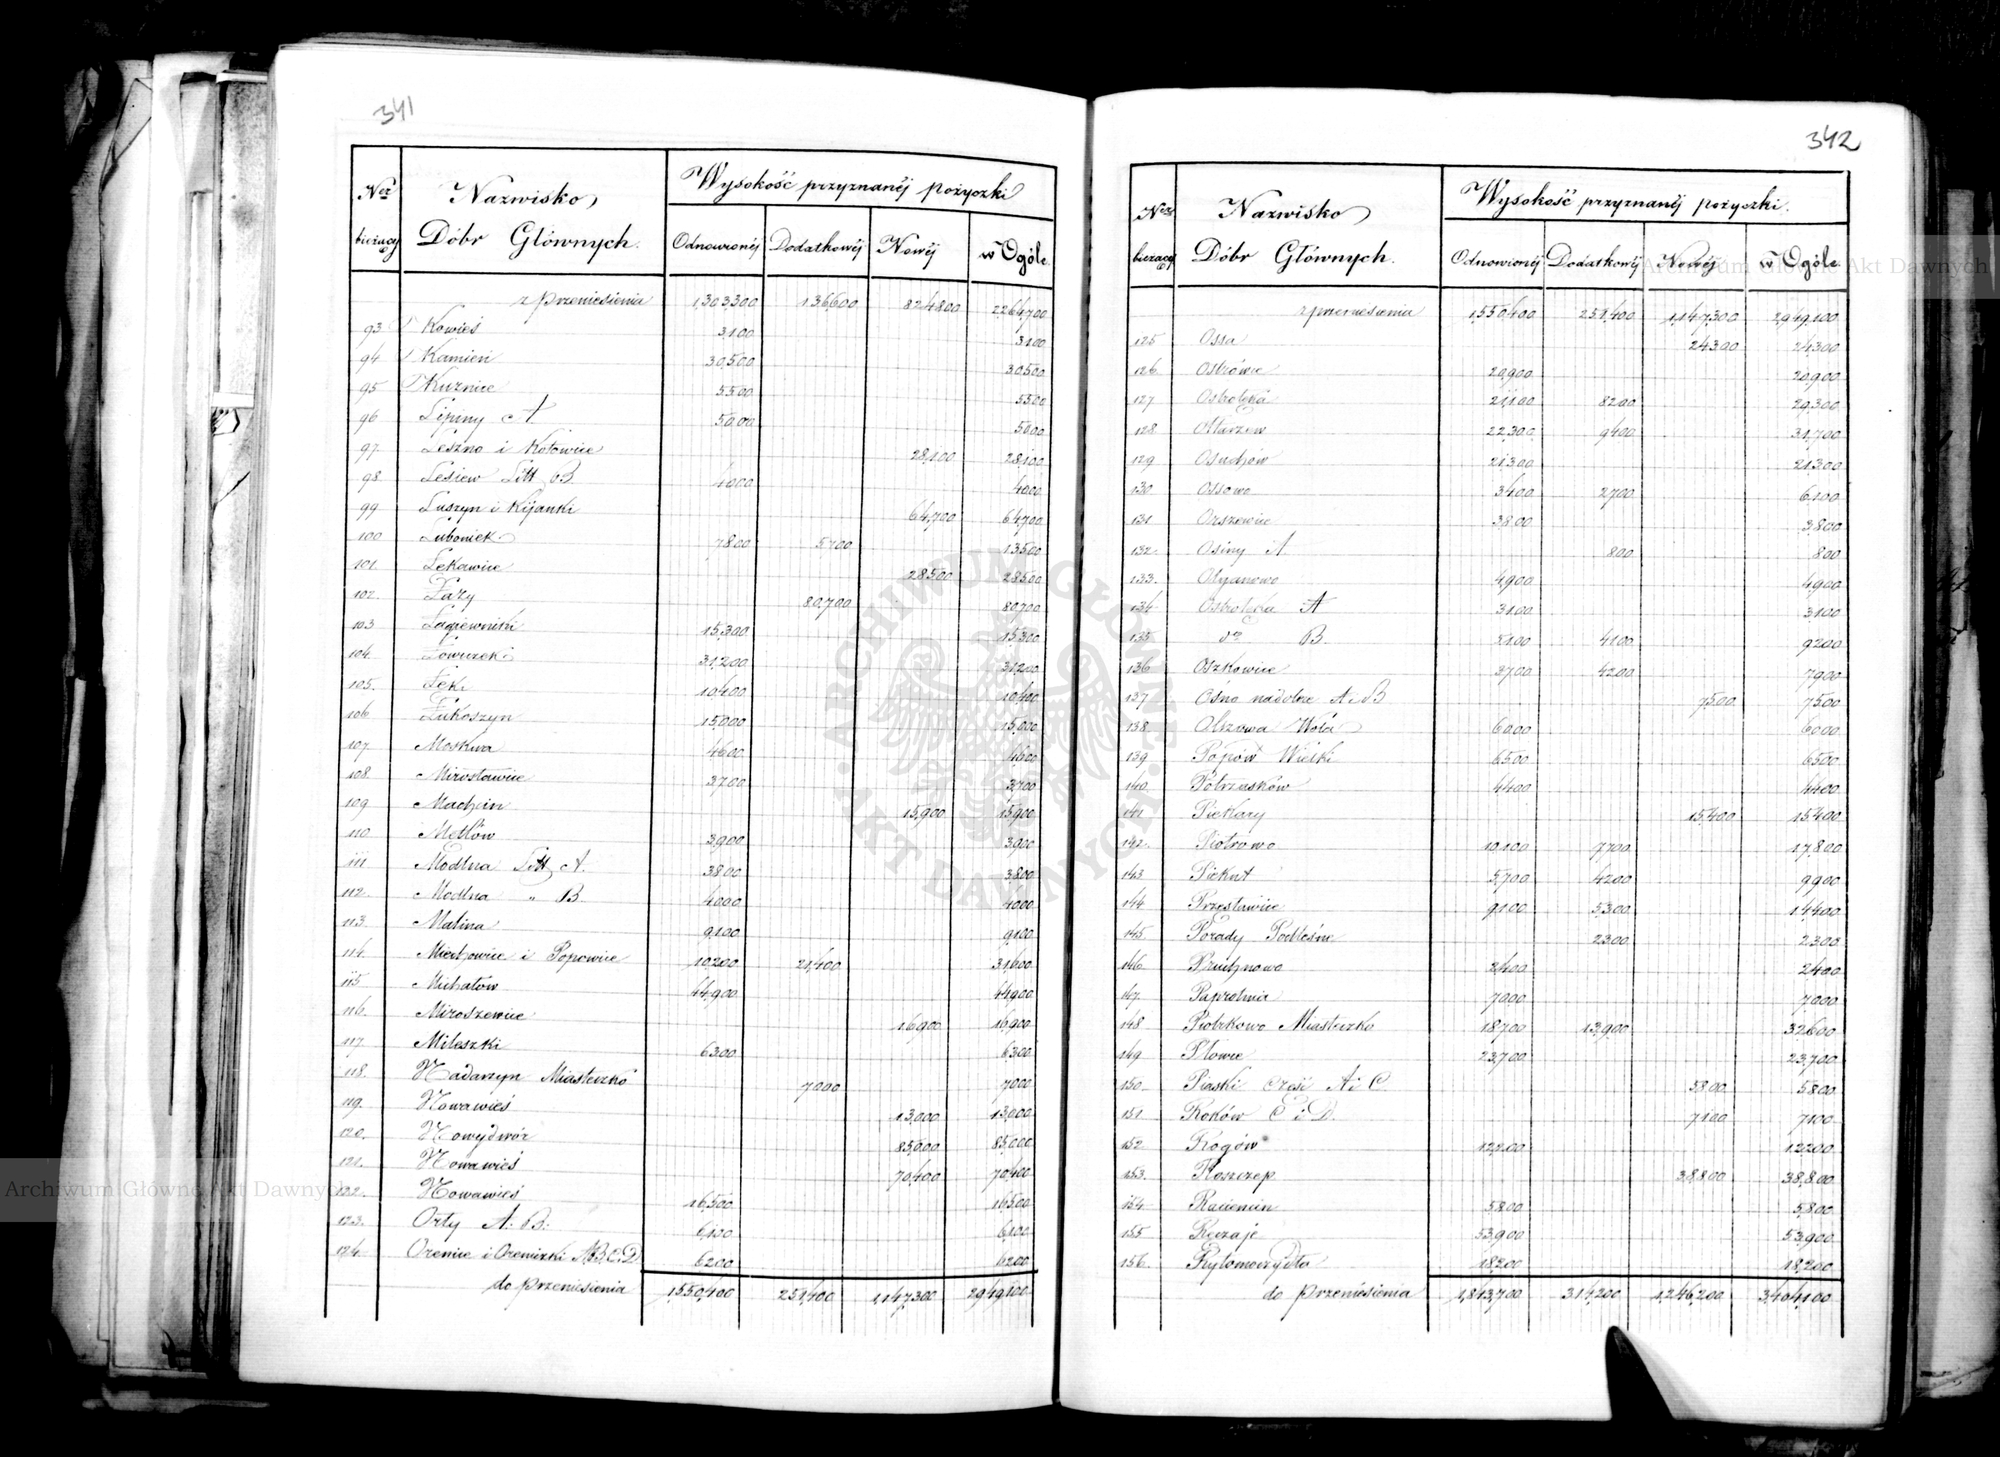 341
Ner bieżący | Nazwisko Dóbr Głównych. | Wysokość przyznanéj pożyczki
Odnowionéj | Dodatkowéj | Nowéj | w Ogóle
z przeniesienia 1,303,300 136,600 824,800 2,264,700
93 Kowieś 3,100 3,100
94 Kamień 30,500 30,500
95 Kuźnice 5500 5500
96 Lipiny A. 5000 5000
97. Leszno i Kotowice 28,100 28,100
98 Lesiew Litt B 4000 4000
99 Luszyn i Kijanki 64,700 64,700
100 Luboniek 7800 5700 13500
101. Lekawice 28500 28500
102. Łazy 80,700 80,700
103 Łagiewniki 15,300 15,300
104. Łowiczek 31,200 31,200
105. Łęk. 10,400 10,400
106 Łukoszyn 15,000 15,000
107. Moskwa 4600 4600
108. Mirosławice 3700 3,700
109 Machcin 15,900 15,900
110 Metlów 3,900 3,900
111 Modlna Litt A. 3800 3800
112. Modlna " B. 4000 4000
113. Malina 9,100 9,100
114. Miechowice i Popowice 10,200 21,400 31,600
115 Michałów 44,900 44,900
116. Miroszewice 16,900 16,900
117. Mileszki 6300 6300
118. Nadarzyn Miasteczko 7000 7000
119. Nowawieś 13,000 13,000
120. Nowydwór 85,000 85,000
121. Nowawieś 70,400 70,400
122. Nowawieś 16,500 16,500
123. Orły A. B. 6,100 6,100
124 Orenice i Oreniczki A.B.C.D 6200 6200
do przeniesienia 1,550,400 251,400 1,147,300 2,949,100
342
Ner bieżący | Nazwisko Dóbr Głównych. | Wysokość przyznanéj pożyczki.
Odnowionéj | Dodatkowéj | Nowéj | w Ogóle
z przeniesienia 1,550,400 251,400 1,147,300 2,949,100
125 Ossa 24300 24300
126. Ostrówie 20,900 20,900
127 Ostrołęka 21,100 8200 29,300
128. Ołtarzew 22,300 9400 31,700
129 Osuchów 21,300 21300
130. Ossowo 3400 2700 6,100
131 Orszewice 3800 3,800
132. Osiny A 800 800
133. Olganowo 4,900 4,900
134. Ostrołęka A 3100 3,100
135 do B. 5100 4100 9200
136 Oszkowice 3700 4200 7900
137 Ośno nadolne A i B 7500 7500
138. Olszowa Wola 6000 6000
139 Popów Wielki 6500 6500
140. Potrzasków 4400 4400
141 Piekary 15,400 15,400
142. Piotrowo 10,100 7700 17,800
143 Pieknt 5,700 4200 9900
144 Przesławice 9,100 5300 14,400
145. Porady Podleśne 2300 2300
146 Pruchnowo 2400 2400
147. Paprotnia 7000 7,000
148 Piotrkowo Miasteczko 18700 13,900 32600
149 Płowce 23,700 23,700
150. Piaski część A i C. 5800 5800
151. Roków C i D. 7100 7100
152 Rogów 12,200 12200
153. Roszczep 38,800 38,800
154 Raciencin 5800 5,800
155 Ręczaje 53,900 53,900
156. Rytomoczydła 18,200 18,200
do przeniesienia 1,813,700 314,200 1,246,200 3,404,100
Archiwum Główne Akt Dawnych
Archiwum Główne Akt Dawnych
ARCHIWUM GŁÓWNE AKT DAWNYCH